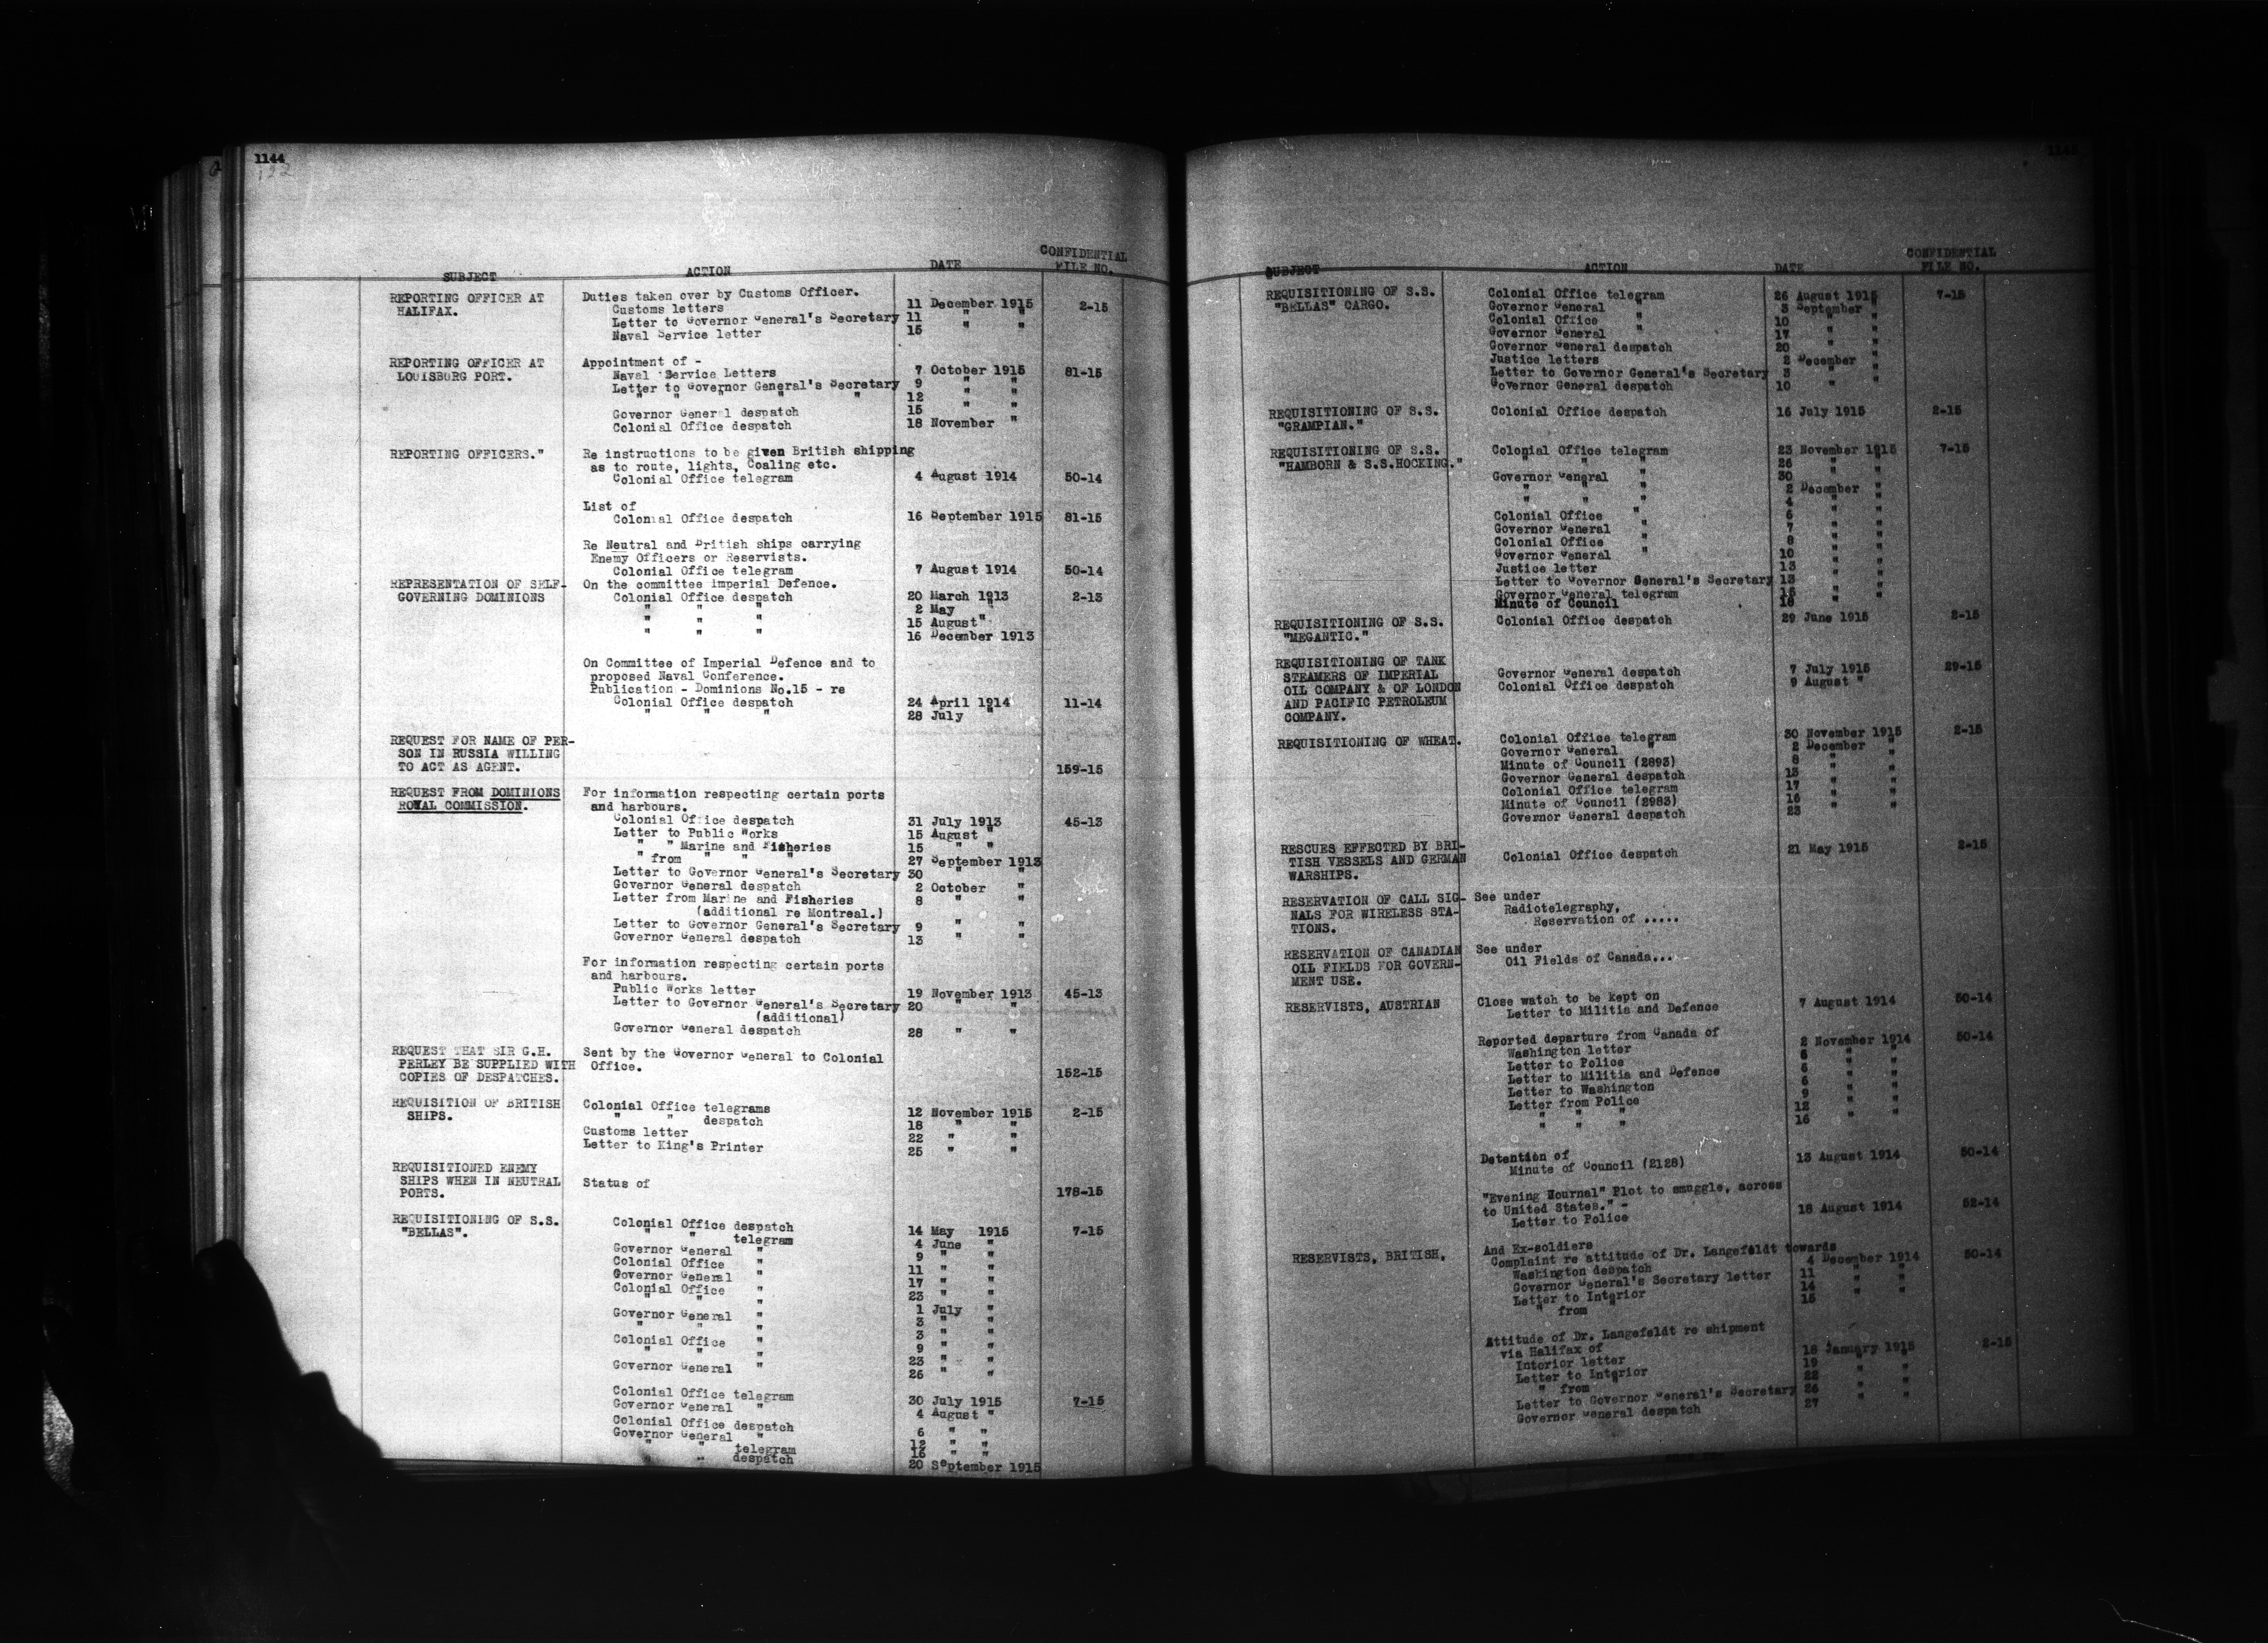 1144
SUBJECT ACTION DATE CONFIDENTIAL FILE NO.
REPORTING OFFICER AT Duties taken over by Customs Officer.
HALIFAX. Customs letters 11 December 1915 2-15
Letter to Governor General's Secretary 11 " "
Naval Service letter 15 " "
REPORTING OFFICER AT Appointment of -
LOUISBURG PORT. Naval Service Letters 7 October 1915 81-15
Letter to Governor General's Secretary 9 " "
" " " " " 12 " "
Governor General despatch 15 " "
Colonial Office despatch 18 November "
REPORTING OFFICERS." Re instructions to be given British shipping
as to route, lights, Coaling etc.
Colonial Office telegram 4 August 1914 50-14
List of
Colonial Office despatch 16 September 1915 81-15
Re Neutral and British ships carrying
Enemy Officers or Reservists.
Colonial Office telegram 7 August 1914 50-14
REPRESENTATION OF SELF- On the committee Imperial Defence.
GOVERNING DOMINIONS Colonial Office despatch 20 March 1913 2-13
" " " 2 May "
" " " 15 August "
" " " 16 December 1913
On Committee of Imperial Defence and to
proposed Naval Conference.
Publication - Dominions No.15 - re
Colonial Office despatch 24 April 1914 11-14
" " " 28 July "
REQUEST FOR NAME OF PER-
SON IN RUSSIA WILLING
TO ACT AS AGENT. 159-15
REQUEST FROM DOMINIONS For information respecting certain ports
ROYAL COMMISSION. and harbours.
Colonial Office despatch 31 July 1913 45-13
Letter to Public Works 15 August "
" " Marine and Fisheries 15 " "
" from " " " 27 September 1913
Letter to Governor General's Secretary 30 " "
Governor General despatch 2 October "
Letter from Marine and Fisheries 8 " "
(additional re Montreal.)
Letter to Governor General's Secretary 9 " "
Governor General despatch 13 " "
For information respecting certain ports
and harbours.
Public Works letter 19 November 1913 45-13
Letter to Governor General's Secretary 20 " "
(additional)
Governor General despatch 28 " "
REQUEST THAT SIR G.H. Sent by the Governor General to Colonial
PERLEY BE SUPPLIED WITH Office.
COPIES OF DESPATCHES. 152-15
REQUISITION OF BRITISH Colonial Office telegrams 12 November 1915 2-15
SHIPS. " " despatch 18 " "
Customs letter 22 " "
Letter to King's Printer 25 " "
REQUISITIONED ENEMY
SHIPS WHEN IN NEUTRAL Status of
PORTS. 178-15
REQUISITIONING OF S.S. Colonial Office despatch 14 May 1915 7-15
"BELLAS". " " telegram 4 June "
Governor General " 9 " "
Colonial Office " 11 " "
Governor General " 17 " "
Colonial Office " 23 " "
" " " 1 July "
Governor General " 3 " "
" " " 3 " "
Colonial Office " 9 " "
" " " 23 " "
Governor General " 26 " "
Colonial Office telegram 30 July 1915 7-15
Governor General " 4 August "
Colonial Office despatch 6 " "
Governor General " 12 " "
" " telegram 16 " "
" " despatch 20 September 1915
SUBJECT ACTION DATE CONFIDENTIAL FILE NO.
REQUISITIONING OF S.S. Colonial Office telegram 26 August 1915 7-15
"BELLAS" CARGO. Governor General " 3 September "
Colonial Office " 10 " "
Governor General " 17 " "
Governor General despatch 20 " "
Justice letters 2 December "
Letter to Governor General's Secretary 3 " "
Governor General despatch 10 " "
REQUISITIONING OF S.S. Colonial Office despatch 16 July 1915 2-15
"GRAMPIAN."
REQUISITIONING OF S.S. Colonial Office telegram 23 November 1915 7-15
"HAMBORN & S.S.HOCKING." " " " 26 " "
Governor General " 30 " "
" " " 2 December "
" " " 4 " "
Colonial Office " 6 " "
Governor General " 7 " "
Colonial Office " 8 " "
Governor General " 10 " "
Justice letter 13 " "
Letter to Governor General's Secretary 13 " "
Governor General telegram 15 " "
Minute of Council 16
REQUISITIONING OF S.S. Colonial Office despatch 29 June 1915 2-15
"MEGANTIC."
REQUISITIONING OF TANK
STEAMERS OF IMPERIAL Governor General despatch 7 July 1915 29-15
OIL COMPANY & OF LONDON Colonial Office despatch 9 August "
AND PACIFIC PETROLEUM
COMPANY.
REQUISITIONING OF WHEAT. Colonial Office telegram 30 November 1915 2-15
Governor General " 2 December "
Minute of Council (2893) 8 " "
Governor General despatch 13 " "
Colonial Office telegram 17 " "
Minute of Council (2983) 16 " "
Governor General despatch 23
RESCUES EFFECTED BY BRI-
TISH VESSELS AND GERMAN Colonial Office despatch 21 May 1915 2-15
WARSHIPS.
RESERVATION OF CALL SIG- See under
NALS FOR WIRELESS STA- Radiotelegraphy,
TIONS. Reservation of .....
RESERVATION OF CANADIAN See under
OIL FIELDS FOR GOVERN- Oil Fields of Canada...
MENT USE.
RESERVISTS, AUSTRIAN Close watch to be kept on
Letter to Militia and Defence 7 August 1914 50-14
Reported departure from Canada of
Washington letter 2 November 1914 50-14
Letter to Police 5 " "
Letter to Militia and Defence 5 " "
Letter to Washington 6 " "
Letter from Police 9 " "
" " " 12 " "
16
Detention of
Minute of Council (2128) 13 August 1914 50-14
"Evening Journal" Plot to smuggle, across
to United States." -
Letter to Police 18 August 1914 52-14
And Ex-soldiers
RESERVISTS, BRITISH, Complaint re attitude of Dr. Langefeldt towards
Washington despatch 4 December 1914 50-14
Governor General's Secretary letter 11 " "
Letter to Interior 14 " "
" from " 15
Attitude of Dr. Langefeldt re shipment
via Halifax of
Interior letter 18 January 1915 2-15
Letter to Interior 19 " "
" from " 22 " "
Letter to Governor General's Secretary 26 " "
Governor General despatch 27